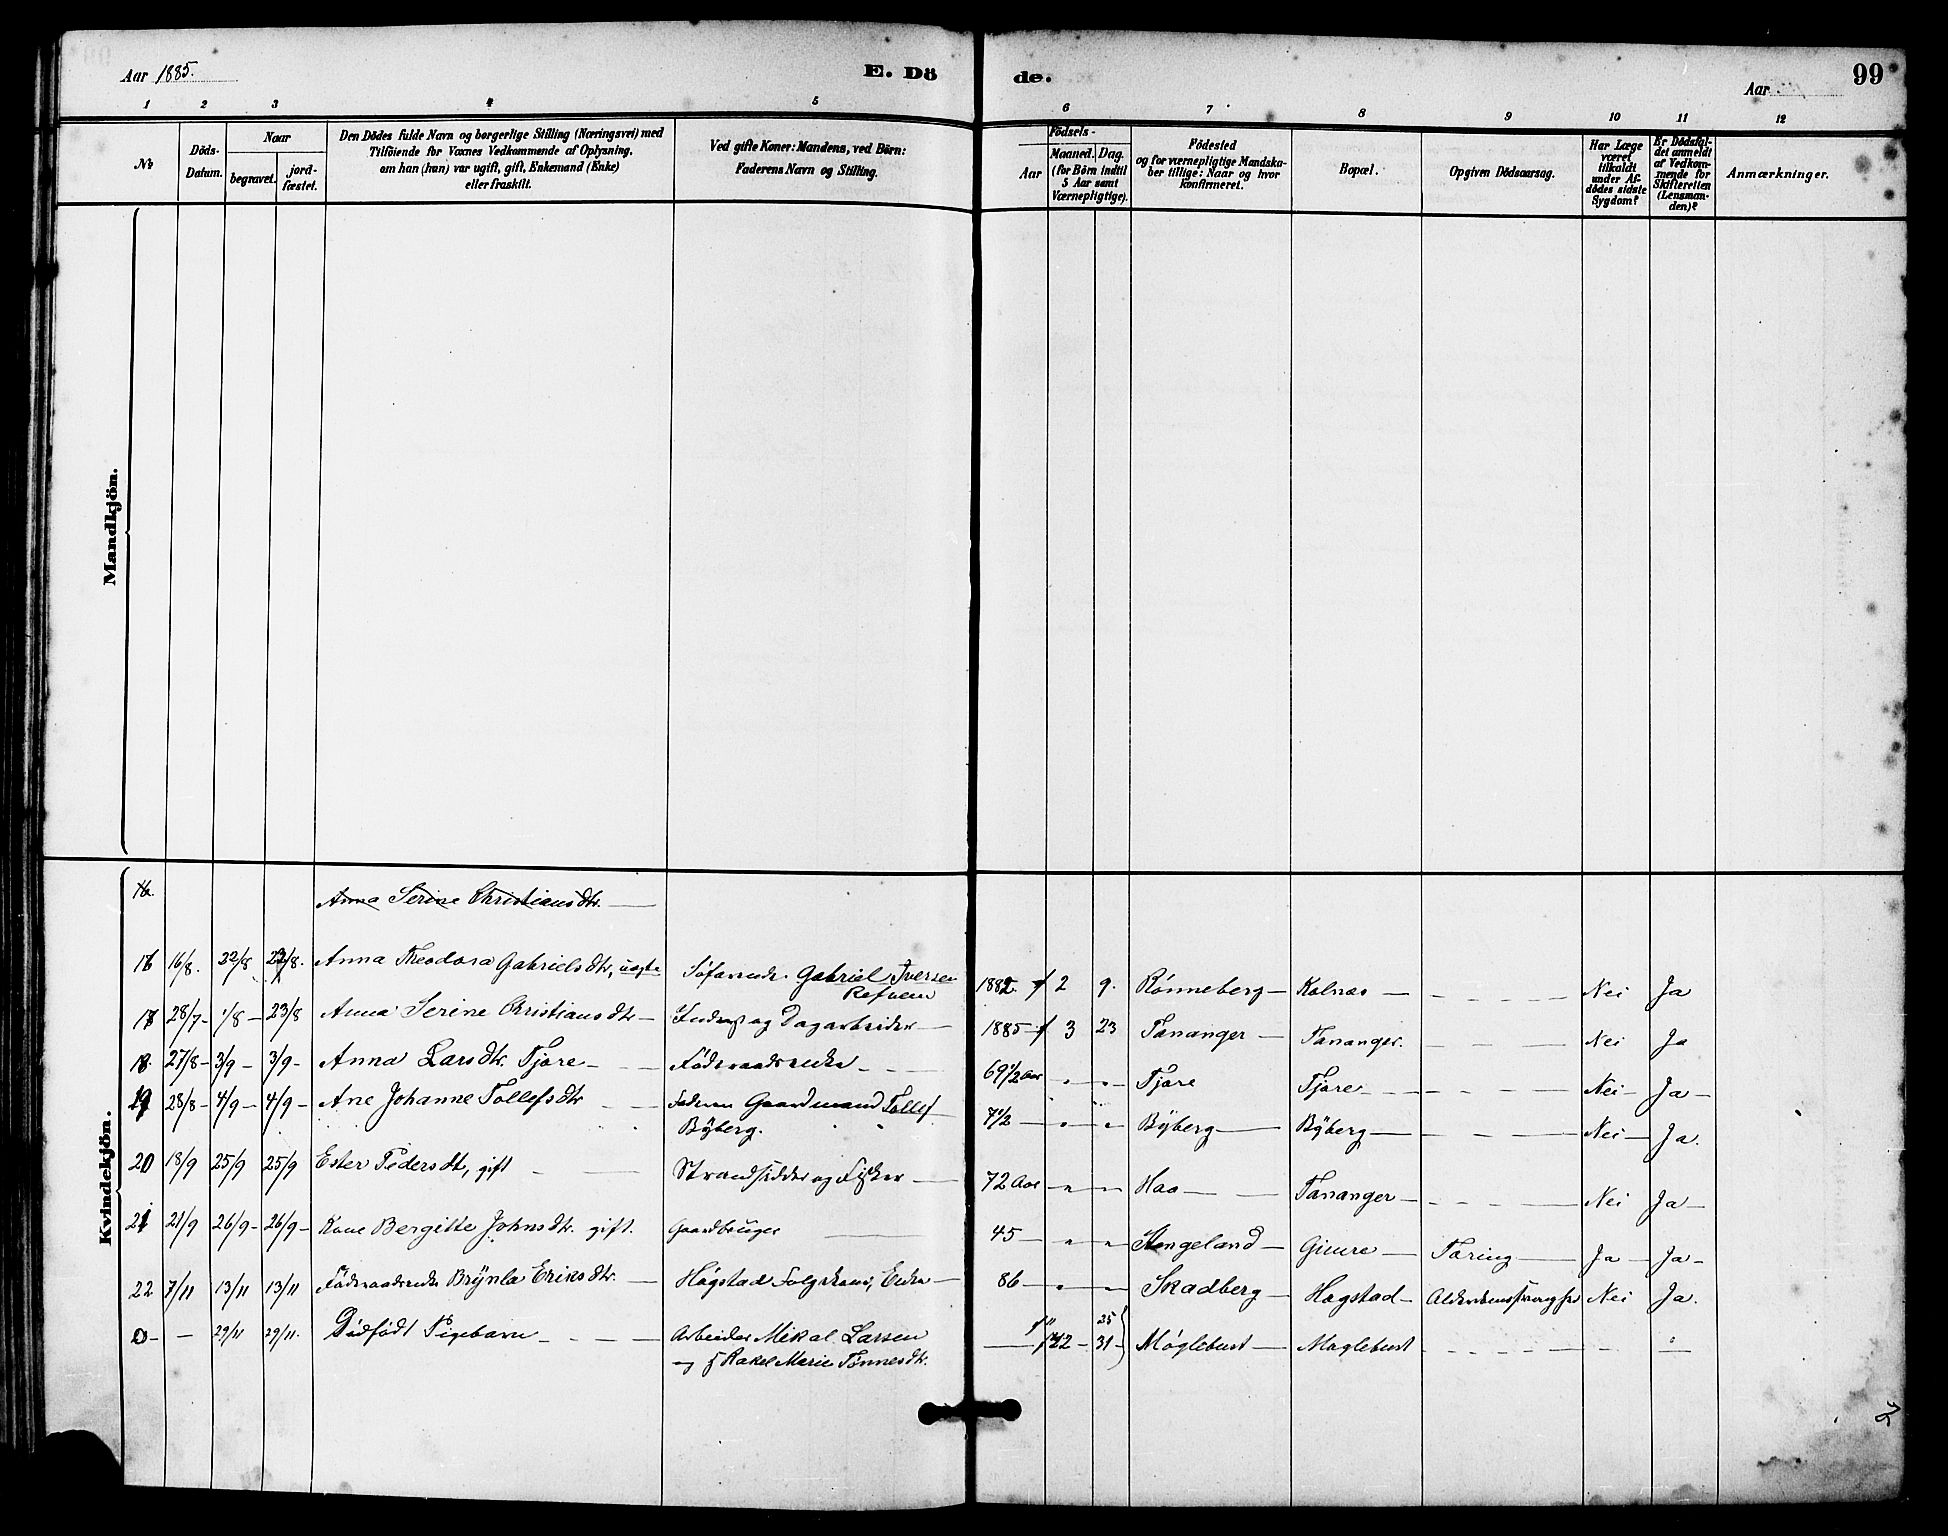 Aar 1885.
E. Dö
de.
Aar
99
1 2 3 4 5 6 7 8 9 10 11 12
No
Döds-
Datum.
Naar
begravet.
jord-
fæstet.
Den Dödes fulde Navn og borgerlige Stilling (Næringsvei) med
Tilföiende for Voxnes Vedkommende af Oplysning,
om han (hun) var ugift, gift, Enkemand (Enke)
eller fraskilt.
Ved gifte Koner: Mandens, ved Börn:
Faderens Navn og Stilling.
Födsels-
Aar
Maaned. Dag.
(for Börn indtil
5 Aar samt
Værnepligtige).
Födested
og for værnepligtige Mandska-
ber tillige: Naar og hvor
konfirmeret.
Bopæl.
Opgiven Dödsaarsag.
Har Læge
været
tilkaldt
under Af-
dödes sidste
Sygdom?
Er Dödsfal-
det anmeldt
af Vedkom-
mende for
Skifteretten
(Lensman-
den)?
Anmærkninger.
Mandkjön.
Kvindekjön.
16. Anna Serine Christiansdtr. —
16 16/8. 22/8 22/8. Anna Theodora Gabrielsdtr, uægte Söfarende Gabriel Iversen
1882. f 2 9. Rönneberg — Kolnæs — Nei Ja
17 28/7 - 1/8 - 23/8 Anna Serine Christiansdtr — Inderst og Dagarbeider —
1885 f 3 23 Tananger — Tananger. — Nei Ja
18. 27/8 - 3/9 - 3/9 - Anna Larsdtr. Tjore — Föderaadsenke —
69 1/2 Aar " " Tjore Tjore — Nei - Ja -
19 28/8 - 4/9 - 4/9 - Ane Johanne Tollefsdtr — Faderen Gaardmand Tollef
Byberg.
7 1/2 — " " Byberg — Byberg — Nei - Ja.
20 18/9 25/9 25/9 Ester Pedersdt, gift — Strandsidder og Fisker —
72 Aar — " — Haa — Tananger — Nei Ja -
21 21/9 26/9 - 26/9 - Kone Bergitte Johnsdtr. gift. Gaardbruger —
45 — " " Stangeland — Gimre — Tæring — Ja - Ja -
22 7/11 13/11 13/11 Föderaadsenke Brynla Eriksdtr. — Högstad Enke —
86 — " — Skadberg — Hogstad — Nei Ja.
0 - - 29/11 29/11. Dödfödt Pigebarn — Arbeider Mikal Larsen
og Rakel Marie Tönnesdtr.
25
31 Möglebust — Moglebust —